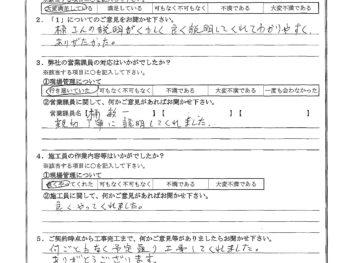 ※該当する項目に○を記入して下さい。
大変満足している 満足している 可もなく不可もなく 不満である 大変不満である
2.「1」についてのご意見をお聞かせ下さい。
さんの説明がくわしく良く説明してくれてわかりやすく、
ありがたかった。
3. 弊社の営業課員の対応はいかがでしたか?
※該当する項目に○を記入して下さい。
①現場管理について
行き届いていた 可もなく不可もなく 不満である 大変不満である 一度も会わなかった
②営業課員に関して、何かご意見があればお聞かせ下さい。
営業課員名【 】【 】【 】
親切丁寧に説明してくれました。
4. 施工員の作業内容等はいかがでしたか?
※該当する項目に○を記入して下さい。
①現場管理について
良くやってくれた 可もなく不可もなく 不満である 大変不満である
②施工員に関して、何かご意見があればお聞かせ下さい。
良くやってくれました。
5. ご契約時点から工事完工まで、何かご意見等がありましたらお聞かせ下さい。
何ごともなく予定通り工事してくれました。
ありがとうございます。